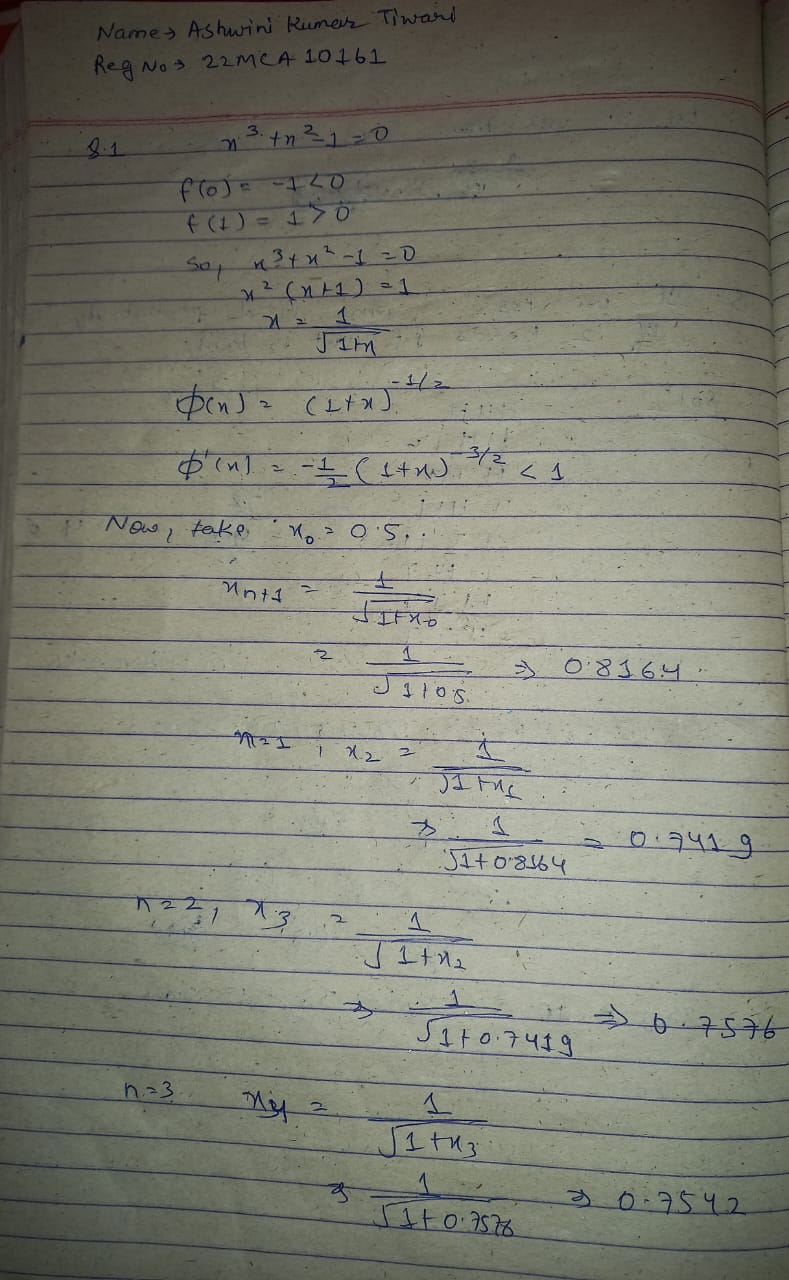 Name → Ashwini Kumar Tiwari
Reg No → 22MCA 10161
Q.1 x³ + x² - 1 = 0
f(0) = -1 < 0
f(1) = 1 > 0
So, x³ + x² - 1 = 0
x² (x+1) = 1
x = 1/√1+x
ϕ(x) = (1+x)^-1/2
ϕ'(x) = -1/2 (1+x)^-3/2 < 1
Now, take x₀ = 0.5.
xₙ₊₁ = 1/√1+x₀
= 1/√1+0.5 ⇒ 0.8164
n=1, x₂ = 1/√1+x₁
⇒ 1/√1+0.8164 = 0.7419
n=2, x₃ = 1/√1+x₂
⇒ 1/√1+0.7419 ⇒ 0.7576
n=3 x₄ = 1/√1+x₃
⇒ 1/√1+0.7576 ⇒ 0.7542